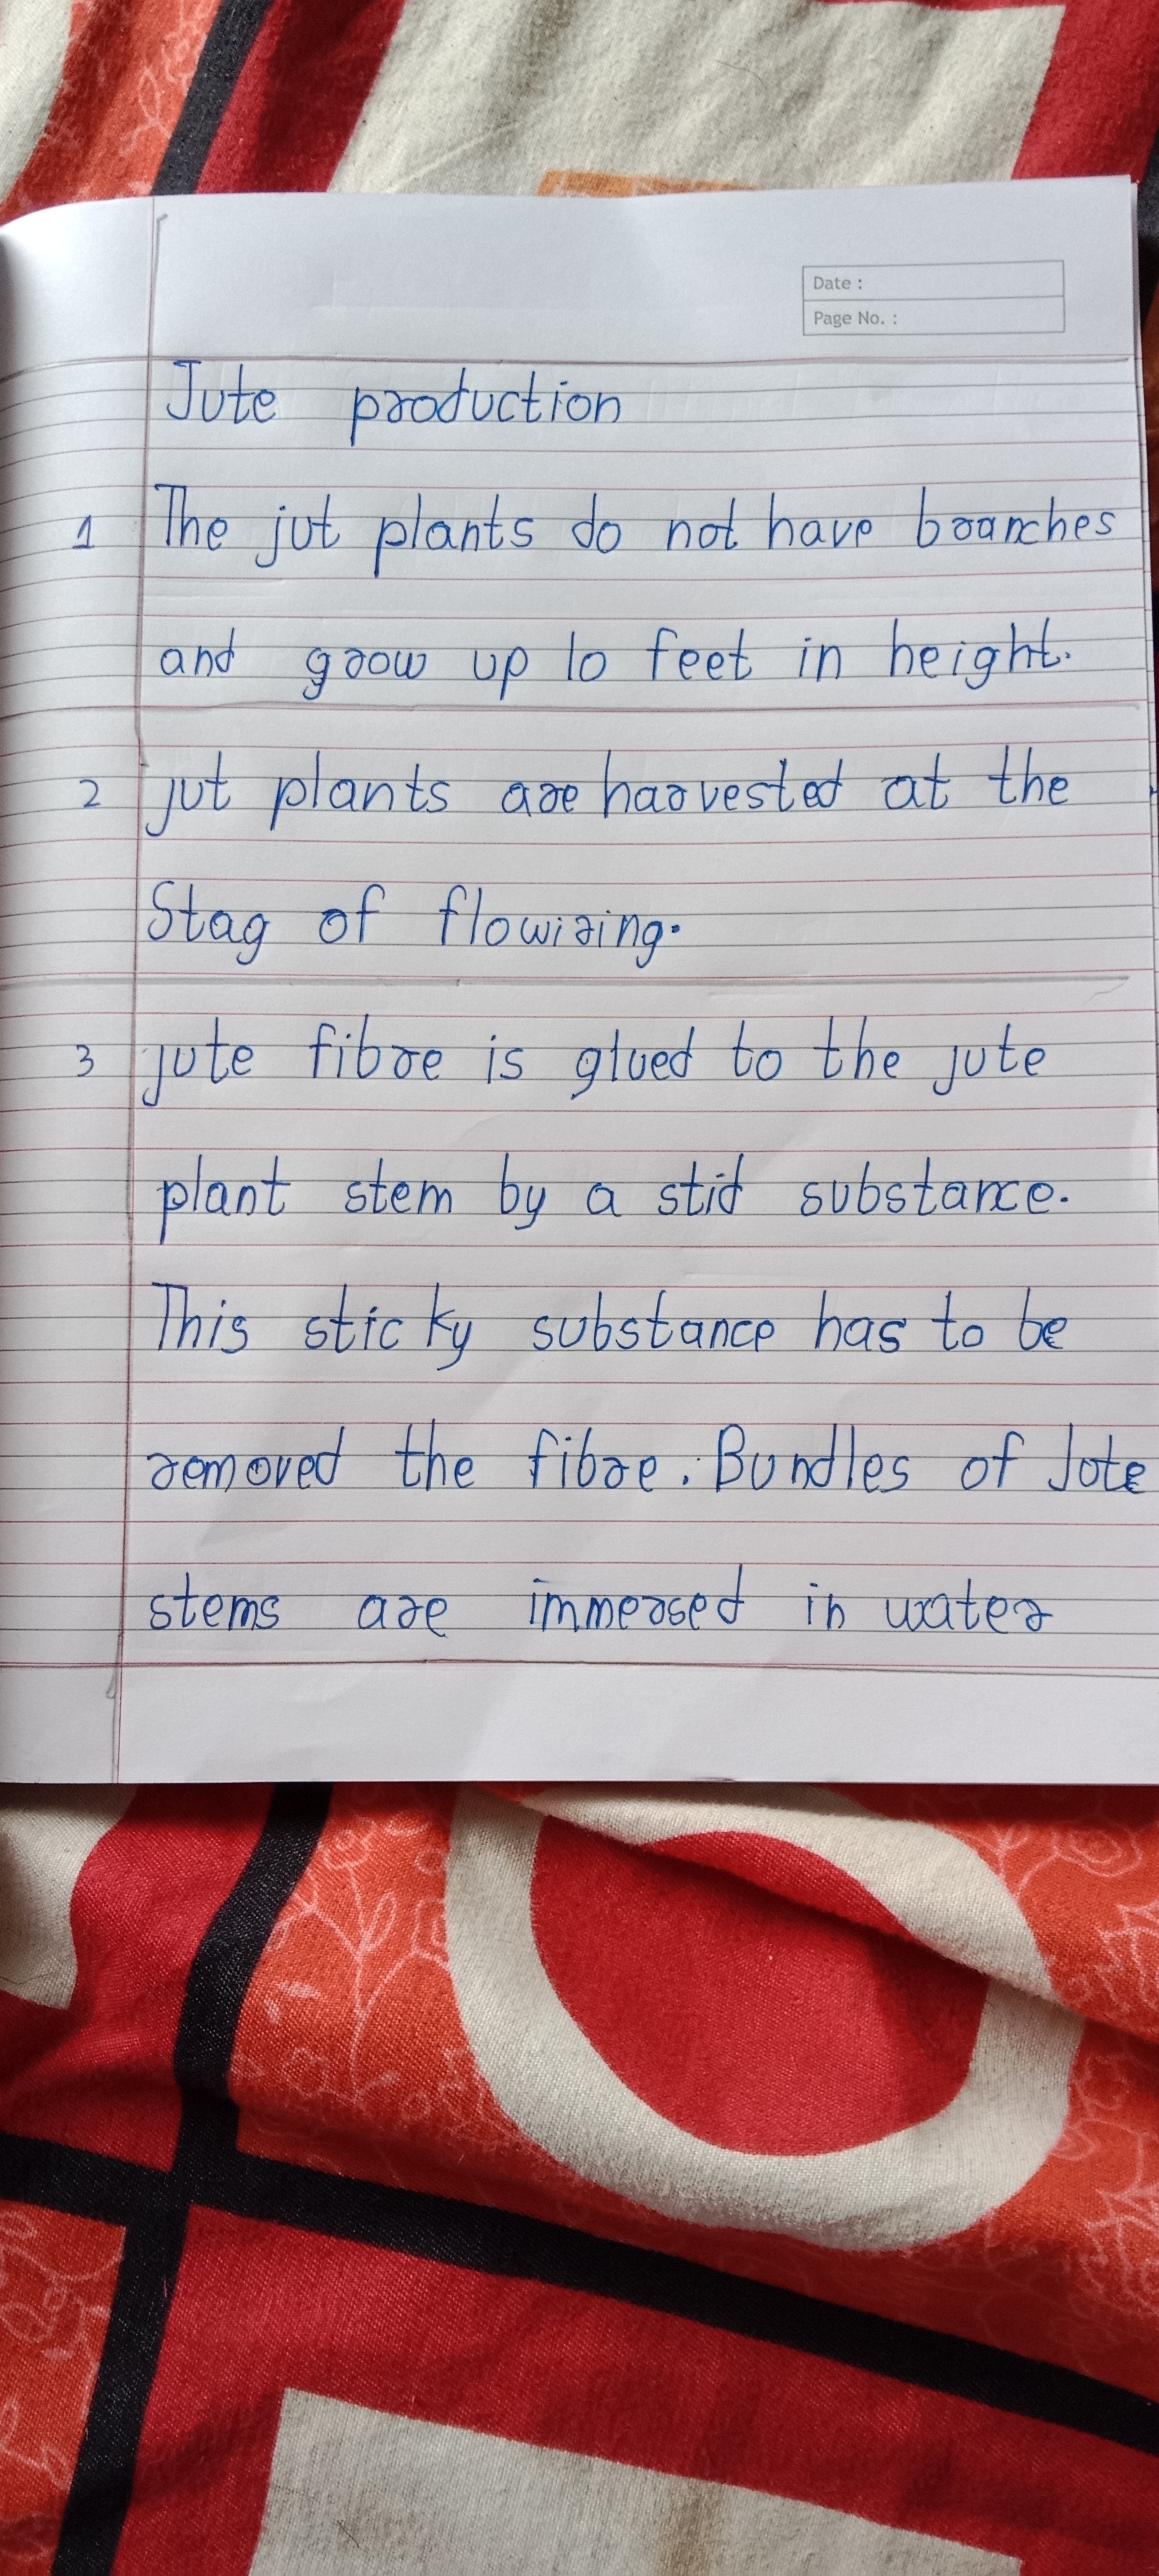 Date :
Page No. :
Jute production
1 The jut plants do not have branches
and grow up to feet in height.
2 jut plants are harvested at the
Stag of flowiring.
3 jute fibre is glued to the jute
plant stem by a stid substance.
This sticky substance has to be
removed the fibre. Bundles of Jote
stems are immersed in water